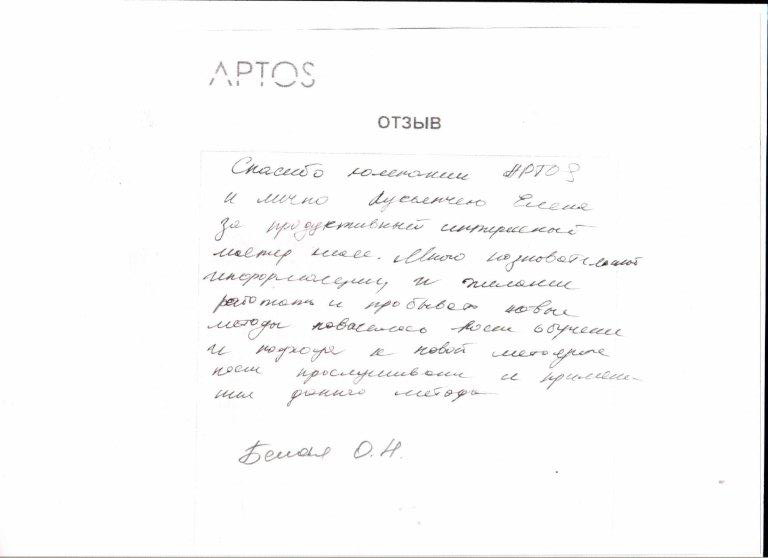 APTOS
ОТЗЫВ
Спасибо компании APTOS
и лично Елена
за продуктивный интересный
мастер класс. Много познавательной
информации и желании
работать и пробывать новые
методы обучени
и подхода к новой методике
после прослушивани и примене-
ния данного метода
Белая О.Н.